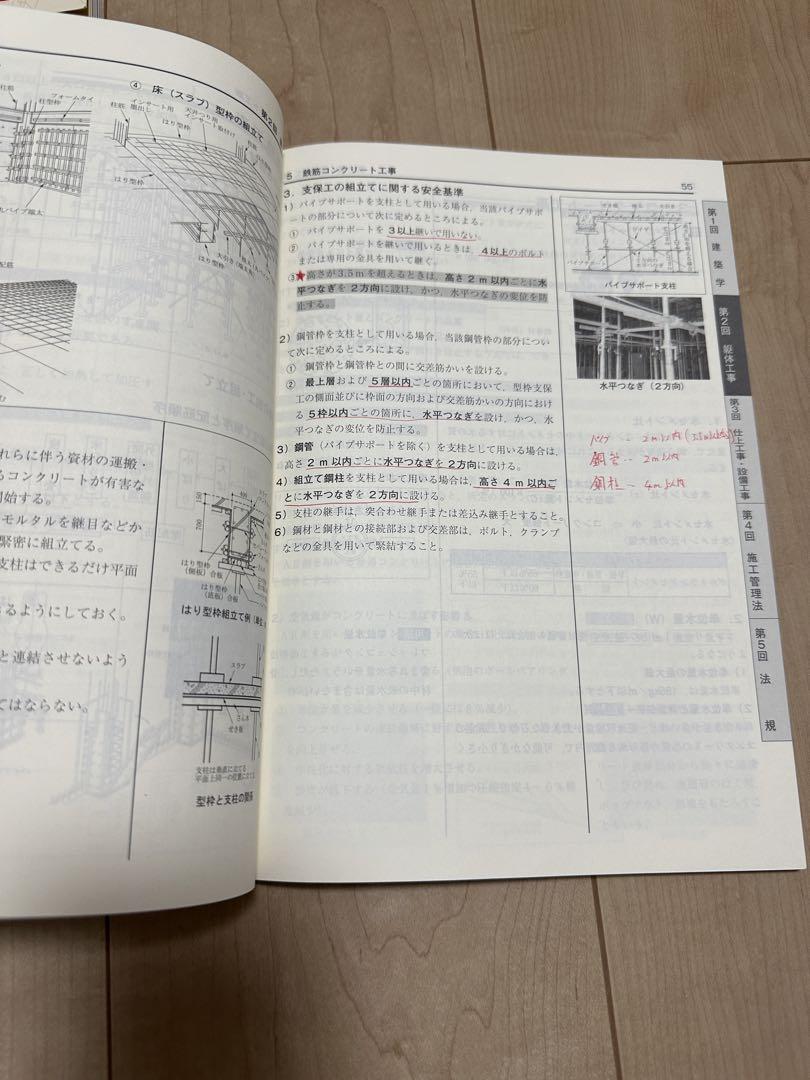 ④ 床（スラブ）型枠の組立て
第2回
フォームタイ
柱型枠
柱筋
インサート用
墨出し
天井つり用
インサート取付け
はり型枠
はり型枠
はり型枠
配筋
れらに伴う資材の運搬・
るコンクリートが有害な
モルタルを継目などか
緊密に組立てる。
支柱はできるだけ平面
るようにしておく。
と連結させないよう
てはならない。
はり型枠
（側板）合板
はり型枠
（底板）合板
はり型枠組立て例
スラブ
さん木
せき板
支柱は垂直に立てる
平面上同一の位置に立てる
型枠と支柱の関係
5 鉄筋コンクリート工事
55
3．支保工の組立てに関する安全基準
1）パイプサポートを支柱として用いる場合，当該パイプサポ
ートの部分について次に定めるところによる。
① パイプサポートを3以上継いで用いない。
② パイプサポートを継いで用いるときは，4以上のボルト
または専用の金具を用いて継ぐ。
③★高さが3.5mを超えるときは，高さ2m以内ごとに水
平つなぎを2方向に設け，かつ，水平つなぎの変位を防
止する。
2）鋼管枠を支柱として用いる場合，当該鋼管枠の部分につい
て次に定めるところによる。
① 鋼管枠と鋼管枠との間に交差筋かいを設ける。
② 最上層および5層以内ごとの箇所において，型枠支保
工の側面並びに枠面の方向および交差筋かいの方向におけ
る5枠以内ごとの箇所に，水平つなぎを設け，かつ，水
平つなぎの変位を防止する。
3）鋼管（パイプサポートを除く）を支柱として用いる場合は，
高さ2m以内ごとに水平つなぎを2方向に設ける。
4）組立て鋼柱を支柱として用いる場合は，高さ4m以内ご
とに水平つなぎを2方向に設ける。
5）支柱の継手は，突合わせ継手または差込み継手とすること。
6）鋼材と鋼材との接続部および交差部は，ボルト，クランプ
などの金具を用いて緊結すること。
パイプサポート
パイプサポート支柱
水平つなぎ（2方向）
パイプ － 2m以内
鋼管 － 2m以内
鋼柱 － 4m以内
第1回 建築学
第2回 躯体工事
第3回 仕上工事・設備工事
第4回 施工管理法
第5回 法規